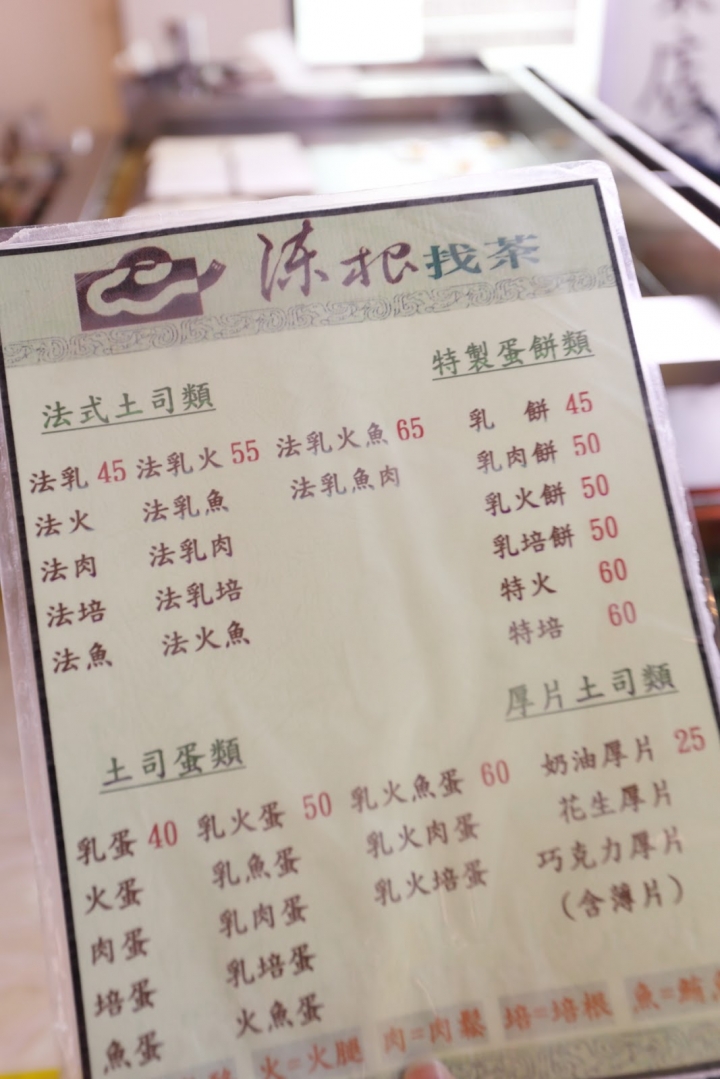 涷根找茶
特製蛋餅類
乳 餅 45
乳肉餅 50
乳火餅 50
乳培餅 50
特火 60
特培 60
法式土司類
法乳 45 法乳火 55 法乳火魚 65
法火 法乳魚 法乳魚肉
法肉 法乳肉
法培 法乳培
法魚 法火魚
厚片土司類
奶油厚片 25
花生厚片
巧克力厚片
(含薄片)
土司蛋類
乳蛋 40 乳火蛋 50 乳火魚蛋 60
火蛋 乳魚蛋 乳火肉蛋
肉蛋 乳肉蛋 乳火培蛋
培蛋 乳培蛋
魚蛋 火魚蛋
火=火腿 肉=肉鬆 培=培根 魚=鮪